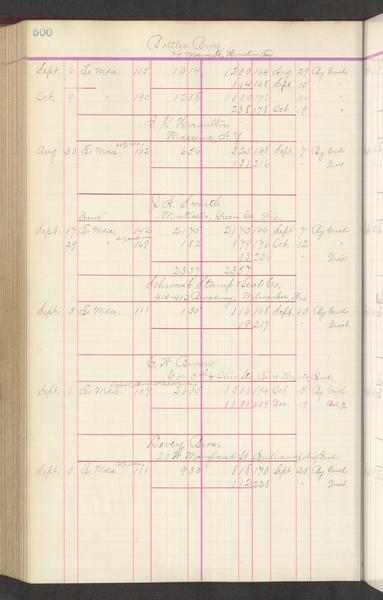 500
Bottler Bros
79 Main St, Houston Tex.
Sept. 6 To Mdse. 115 1314 1200 164 Aug 29 By Cash
114 168 Sept. 15 "
Oct. 9 " 190 1238 1000 172 "
238 178 Oct. 9 "
B K Hamilton
Massena, N.Y.
Aug 30 To Mdse. 102 656 525 168 Sept. 7 By Cash
131 216 " Disct
J. H. Smith
Monticello, Green Co. Wis.
Sept. 17 To Mdse. 142 2175 2175 166 Sept. 7 By Cash
29 " 169 182 149 176 Oct. 12 "
33 236 " Disct
2357 2357
Schwaab Stamp & Seal Co.
410-412 Broadway, Milwaukee, Wis
Sept. 5 To Mdse. 111 135 116 168 Sept. 10 By Cash
19 217 " Disct
E. W. Brown
Cor 5th & Ohio Sts Terre Haute, Ind.
Sept. 1 To Mdse 107 2605 1500 174 Oct. 5 By Cash
1105 Dec. 19
Devey Bros.
20 W. Maryland St. Indianapolis Ind.
Sept. 5 To Mdse 111 930 818 170 Sept. 20 By Cash
112 223 " Disct